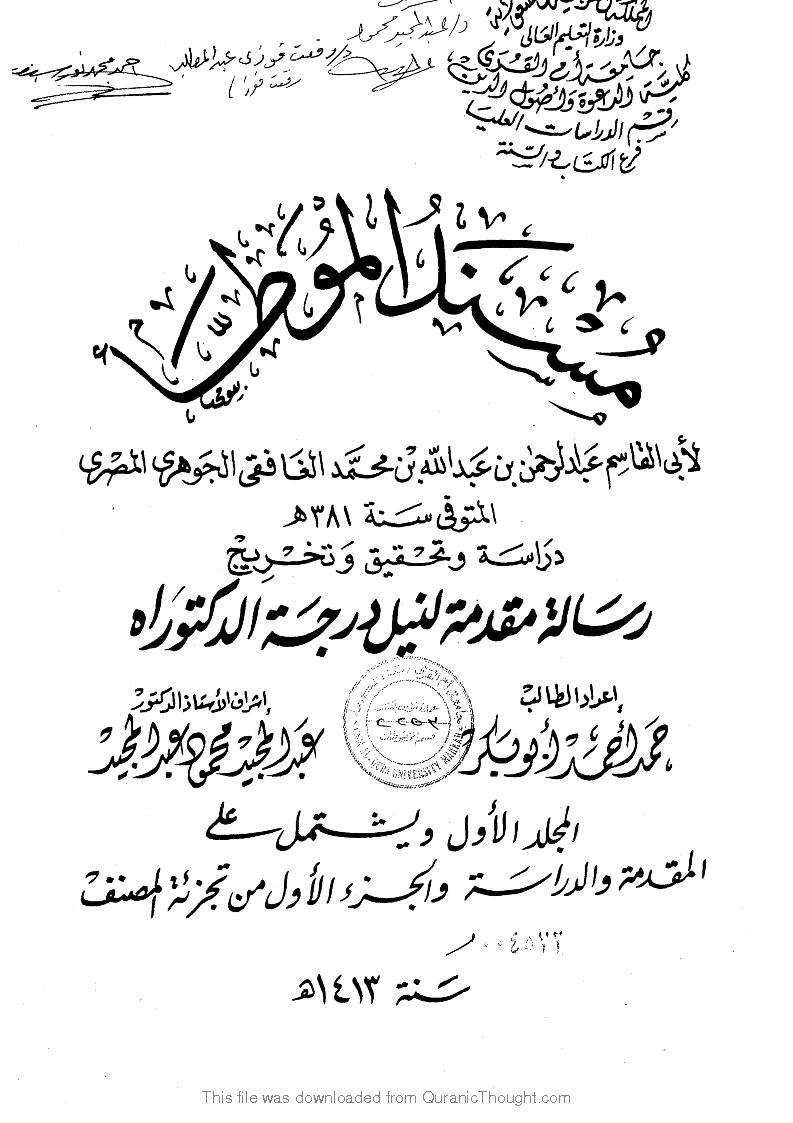 المملكة العربية السعودية
وزارة التعليم العالى
جامعة أم القرى
كلية الدعوة وأصول الدين
قسم الدراسات العليا
فرع الكتاب والسنة
د/عبدالمجيد محمود
د/رفعت فوزى عبدالمطلب
رفعت فوزى
مُسْنَدُ المُوَطَّأ
لأبى القاسم عبدالرحمن بن عبدالله بن محمد الغافقى الجوهرى المصرى
المتوفى سنة ٣٨١هـ
دراسة وتحقيق وتخريج
رسالة مقدمة لنيل درجة الدكتوراه
إعداد الطالب
حمد أحمد أبوبكر
إشراف الأستاذ الدكتور
عبدالمجيد محمود عبدالمجيد
UMM AL-QURA UNIVERSITY MAKKAH
المجلد الأول ويشتمل على
المقدمة والدراسة والجزء الأول من تجزئة المصنف
٠٠٤٥٢٢
سنة ١٤١٣هـ
This file was downloaded from QuranicThought.com